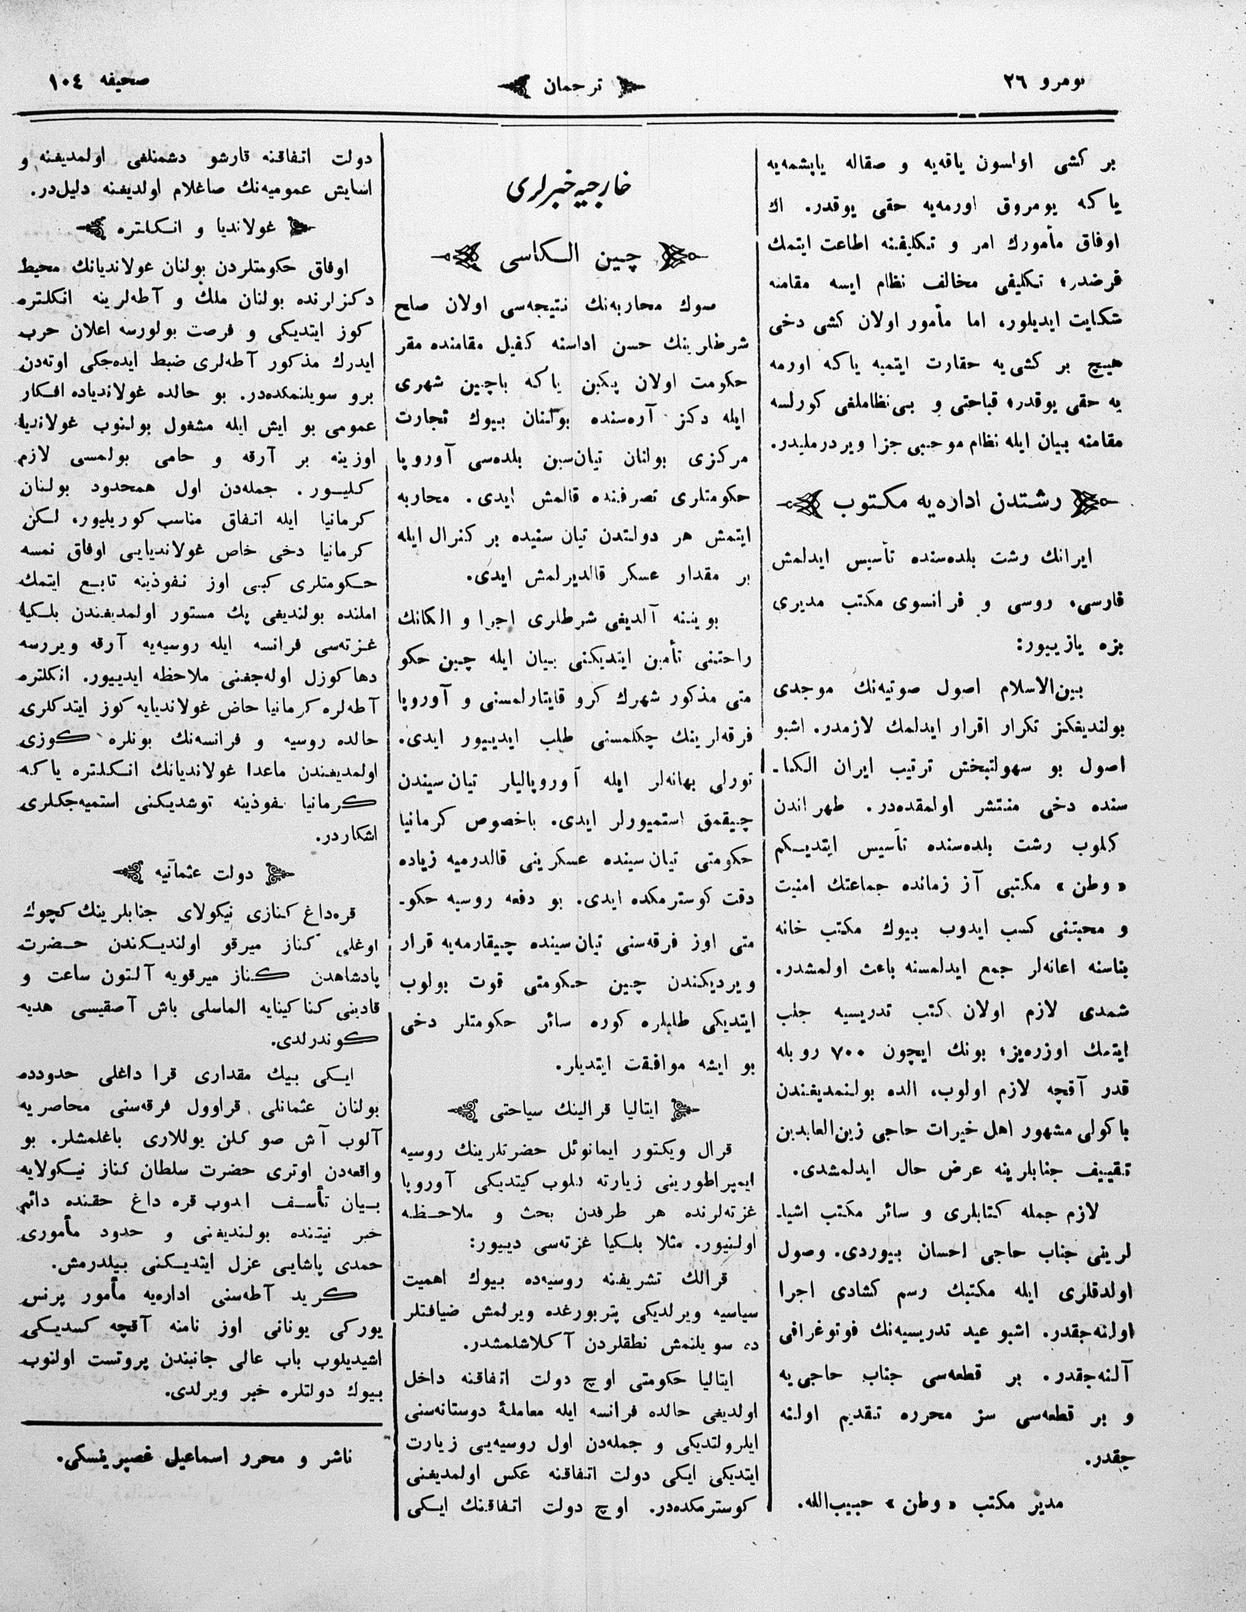 نومرو ٢٦
ترجمان
صحیفه ١٠٤
بر کشی اولسون یاقه‌یه و صقاله یاپشمه‌یه
یا که یومروق اورمه‌یه حقی یوقدر. اك
اوفاق مأمورك امر و تکلیفنه اطاعت ایتمك
فرضدر؛ تکلیفی مخالف نظام ایسه مقامنه
شکایت ایدیلور، اما مأمور اولان کشی دخی
هیچ بر کشی‌یه حقارت ایتمیه یا که اورمه
یه حقی یوقدر؛ قباحتی و بی‌نظاملغی کورلسه
مقامنه بیان ایله نظام موجبی جزا ویردرملیدر.
رشتدن اداره‌یه مکتوب
ایرانك رشت بلده‌سنده تأسیس ایدلمش
فارسی، روسی و فرانسوی مکتب مدیری
بزه یازییور:
بین‌الاسلام اصول صوتیه‌نك موجدی
بولندیغکز تکرار اقرار ایدلمك لازمدر. اشبو
اصول بو سهولتبخش ترتیب ایران الکا۔
سنده دخی منتشر اولمقده‌در. طهراندن
کلوب رشت بلده‌سنده تأسیس ایتدیکم
« وطن » مکتبی آز زمانده جماعتك امنیت
و محبتنی کسب ایدوب بیوك مکتب خانه
بناسنه اعانه‌لر جمع ایدلمسنه باعث اولمشدر.
شمدی لازم اولان کتب تدریسیه جلب
ایتمك اوزره‌یز؛ بونك ایچون ٧٠٠ روبله
قدر آقچه لازم اولوب، الده بولنمدیغندن
باکولی مشهور اهل خیرات حاجی زین‌العابدین
تقییف جنابلرینه عرض حال ایدلمشدی.
لازم جمله کتابلری و سائر مکتب اشیا۔
لرینی جناب حاجی احسان بیوردی. وصول
اولدقلری ایله مکتبك رسم کشادی اجرا
اولنه‌جقدر. اشبو عید تدریسیه‌نك فوتوغرافی
آلنه‌جقدر. بر قطعه‌سی جناب حاجی‌یه
و بر قطعه‌سی سز محرره تقدیم اولنه
جقدر.
مدیر مکتب « وطن » حبیب‌الله.
خارجیه خبرلری
چین الکاسی
صوك محاربه‌نك نتیجه‌سی اولان صلح
شرطلرینك حسن اداسنه کفیل مقامنده مقر
حکومت اولان پکین یا که باچین شهری
ایله دکز آره‌سنده بولنان بیوك تجارت
مرکزی بولنان تیان‌سین بلده‌سی آوروپا
حکومتلری تصرفنده قالمش ایدی. محاربه
ایتمش هر دولتدن تیان سنیده بر کنرال ایله
بر مقدار عسکر قالدیرلمش ایدی.
بویننه آلدیغی شرطلری اجرا و الکانك
راحتنی تأمین ایتدیکنی بیان ایله چین حکو
متی مذکور شهرك کرو قایتارلمسنی و آوروپا
فرقه‌لرینك چکلمسنی طلب ایدییور ایدی.
تورلی بهانه‌لر ایله آوروپالیلر تیان سیندن
چیقمق استمیورلر ایدی. باخصوص کرمانیا
حکومتی تیان سینده عسکرینی قالدرمیه زیاده
دقت کوسترمکده ایدی. بو دفعه روسیه حکو۔
متی اوز فرقه‌سنی تیان سینده چیقارمه‌یه قرار
ویردیکندن چین حکومتی قوت بولوب
ایتدیکی طلبلره کوره سائر حکومتلر دخی
بو ایشه موافقت ایتدیلر.
ایتالیا قرالینك سیاحتی
قرال ویکتور ایمانوئل حضرتلرینك روسیه
ایمپراطورینی زیارته کلوب کیتدیکی آوروپا
غزته‌لرنده هر طرفدن بحث و ملاحظه
اولنیور. مثلا بلکیا غزته‌سی دییور:
قرالك تشریفنه روسیه‌ده بیوك اهمیت
سیاسیه ویرلدیکی پتربورغده ویرلمش ضیافتلر
ده سویلنمش نطقلردن آکلاشلمشدر.
ایتالیا حکومتی اوچ دولت اتفاقنه داخل
اولدیغی حالده فرانسه ایله معاملۀ دوستانه‌سنی
ایلرولتدیکی و جمله‌دن اول روسیه‌یی زیارت
ایتدیکی ایکی دولت اتفاقنه عکس اولمدیغنی
کوسترمکده‌در. اوچ دولت اتفاقنك ایکی
دولت اتفاقنه قارشو دشمنلغی اولمدیغنه و
اسایش عمومیه‌نك صاغلام اولدیغنه دلیل‌در.
غولاندیا و انکلتره
اوفاق حکومتلردن بولنان غولاندیانك محیط
دکزلرنده بولنان ملك و آطه‌لرینه انکلتره
کوز ایتدیکی و فرصت بولورسه اعلان حرب
ایدرك مذکور آطه‌لری ضبط ایده‌جکی اوته‌دن
برو سویلنمکده‌در. بو حالده غولاندیاده افکار
عمومی بو ایش ایله مشغول بولنوب غولاندیا
اوزینه بر آرقه و حامی بولمسی لازم
کلیور. جمله‌دن اول همحدود بولنان
کرمانیا ایله اتفاق مناسب کوریلیور. لکن
کرمانیا دخی خاص غولاندیایی اوفاق نمسه
حکومتلری کبی اوز نفوذینه تابع ایتمك
املنده بولندیغی پك مستور اولمدیغندن بلکیا
غزته‌سی فرانسه ایله روسیه‌یه آرقه ویررسه
دها کوزل اوله‌جغنی ملاحظه ایدییور. انکلتره
آطه‌لره کرمانیا خاص غولاندیایه کوز ایتدکلری
حالده روسیه و فرانسه‌نك بونلره کوزی
اولمدیغندن ماعدا غولاندیانك انکلتره یا که
کرمانیا نفوذینه توشدیکنی استمیه‌جکلری
اشکاردر.
دولت عثمانیه
قره‌داغ کنازی نیکولای جنابلرینك کچوك
اوغلی کناز میرقو اولندیکندن حضرت
پادشاهدن کناز میرقویه آلتون ساعت و
قادینی کناکینایه الماسلی باش آصقیسی هدیه
کوندرلدی.
ایکی بیك مقداری قرا داغلی حدودده
بولنان عثمانلی قراوول فرقه‌سنی محاصریه
آلوب آش صو کلن یوللاری باغلمشلر. بو
واقعه‌دن اوتری حضرت سلطان کناز نیکولایه
بیان تأسف ایدوب قره داغ حقنده دائم
خبر نیتنده بولندیغنی و حدود مأموری
حمدی پاشایی عزل ایتدیکنی بیلدرمش.
کرید آطه‌سنی اداره‌یه مأمور پرنس
یورکی یونانی اوز نامنه آقچه کسدیکی
اشیدیلوب باب عالی جانبندن پروتست اولنوب
بیوك دولتلره خبر ویرلدی.
ناشر و محرر اسماعیل غصپرینسکی.